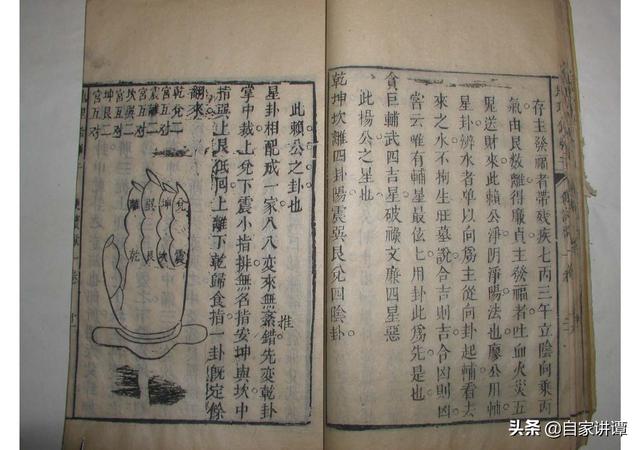 存主發福者帶殘疾七丙三年立陰向乘丙
氣由艮敖離得廉貞主發福者吐血火災五
晁送財來此賴公淨阴淨陽法也廖公用輔
星卦辨水者單以向為主從向卦起輔看去
來之水不拘生旺墓說合吉則吉合凶則凶
管云唯有輔星最佐七用卦此為先是也
貪巨輔武四吉星破祿文廉四星惡
此楊公之星也
乾坤坎離四卦陽震巽艮兌囬陰卦
此賴公之卦也
星卦相配成一家八八变來無紊錯先变乾卦
掌中裁上兌下震小指排無名指安坤與坎中
推
指巽上艮低囬上離下乾歸食指一卦既定餘
翻來
乾兌二
宮五对
震離二
宮五对
坎
宮五对
艮二
宮五对
兌
坤
巽
離
震
坎
艮
乾
头条 @自家讲谭